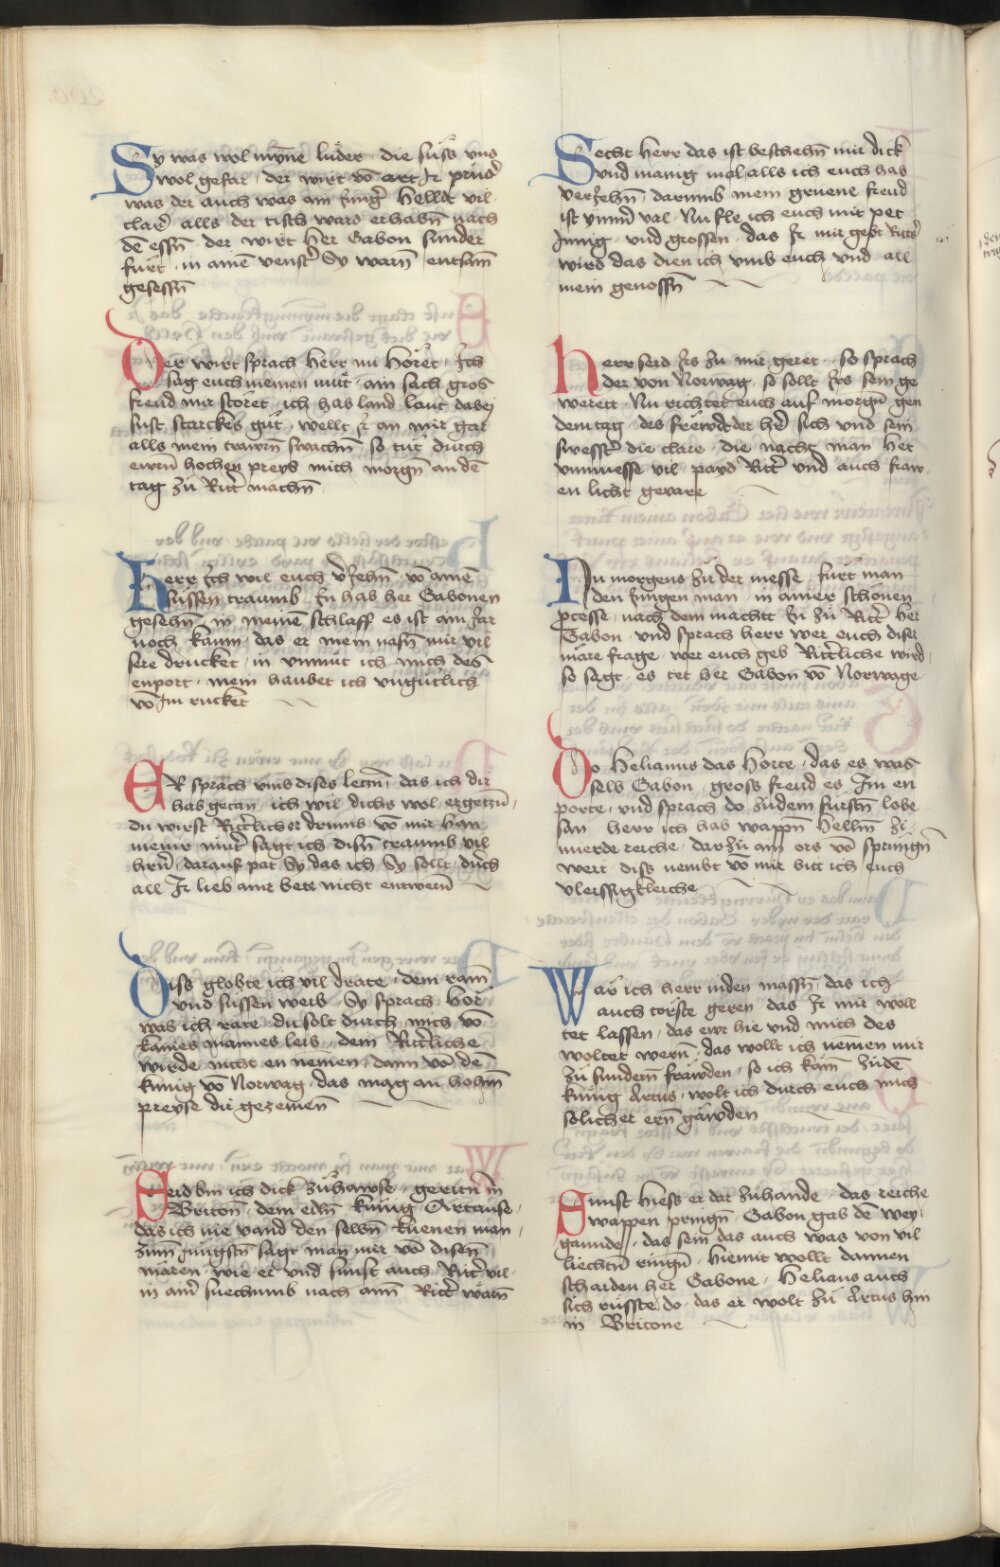 Sy was wol mÿne luder die süss vnd
wol gefar der wirt vō art Jr prud̄
was der auch was am Junḡ helldt vil
clar̄ alls der tisch wars erhabn̄ nach
dē essn̄ der wirt her Gabon sunder
furt in amē venst̄ Sy warn̄ entsam̄
gesessn̄
Der wirt sprach herr nu höret Ich
sag euch meinen müt am sach gros
freud mir storet ich has land laut dabeÿ
sust starckes güt wellt Jr an mir gar
alls mein trawrn̄ swachn̄ so tut durch
ewrn̄ hochen preÿs mich morgn̄ an dē
tag zu Ritt̄ machn̄
Herr Ich wil euch v̄Jehn̄ vō amē
süssen traumb Jn hab her Gabonen
gesehn̄ in meinē schlaff es ist am Jar
noch kaum das er mein nasn̄ mir vil
sere drucket in vnmut ich mich des
enport mein haubet ich vngütlich
vō Jm rucket
ER sprach vmb dises leim̄ das ich dir
hab getan ich wil dichs wol ergetzn̄
du wirst Rittlicher drumb vō mir han
meinr mut̄ sagt ich disn̄ traumb vil
hrn̄ darauf pat Sy das ich Sy sollt duch
all Jr lieb amr bete nicht entwern̄
Diss globte ich vil drate dem ram̄
vnd süssen weib Sy sprach hör
was ich rate du solt durch mich vō
kaines mannes leib dem Rittliche
wirde nicht en nemen dann vō dē
kunig vō Norwag das mag an hohm̄
preÿse dir gezemen
Seid bin ich dick zuhawse geritn̄ in
Briton dem edln̄ kunig Artause
das ich nie vand den selbn̄ kuenen man
zum Jungstn̄ sagt man mir vō disen
mären wie er vnd sunst auch Ritt̄ vil
in am̄ suechumb nach am̄ Ritt̄ wärn̄
Secht herr das ist beschehn̄ mir dick
vnd manig mol alls ich euch has
verJehn̄ darumb mein gruene freud
ist ÿnnd val Nu fle ich euch mit pet
Jnnig vnd grossen das Jr mir gebt Ritt̄
wird das dien ich vmb euch vnd all
mein genossn̄
Herr seid Jrs zu mir geret so sprach
der von Norwag so sollt Jrs sein ge
werett Nu richtet euch auf morgn̄ gen
dem tag des frewdt der hr̄ sich vnd sein
swesst̄ die clare die nacht man het
vnmuesse vil payd Ritt̄ vnd auch fraw
en licht gevare
Nu morgens zu der messe furt man
den Jungen man in amer schönen
presse nach dem machtt Jn zu Ritt̄ her
Gabon vnd sprach herr wer euch diser
märe frage wer euch geb Rittliche wird
so sagt es tet her Gabon vō Norwage
Do Helianus das horte das es was
sels Gabon gross freud es Jm en
porte vnd sprach do zudem fürstn̄ lobe
san herr ich hab wappn̄ hellm̄ zi
mierde reiche darzu am ors vō springn̄
wert diss nembt vō mir bitt ich euch
vleissigkleiche
Wär ich herr inden massn̄ das ich
auch törste geren das Jr mir wolt
tet lassen das ewr hie vnd mich des
woltet wern̄ das wollt ich nemen mir
zu sundern̄ frawden so ich kām zudē
kunig Artus wolt ich durch euch mich
solicher ern̄ gäwden
Sunst hiess er dar zuhande das reiche
wappen pringn̄ Gabon gab dē wey
gannde das sein das auch was von vil
liechtn̄ ringn̄ hiemit wollt dannen
scharden her Gabone Helians auch
sich russte do das er wolt zu Artus hin
in Britone